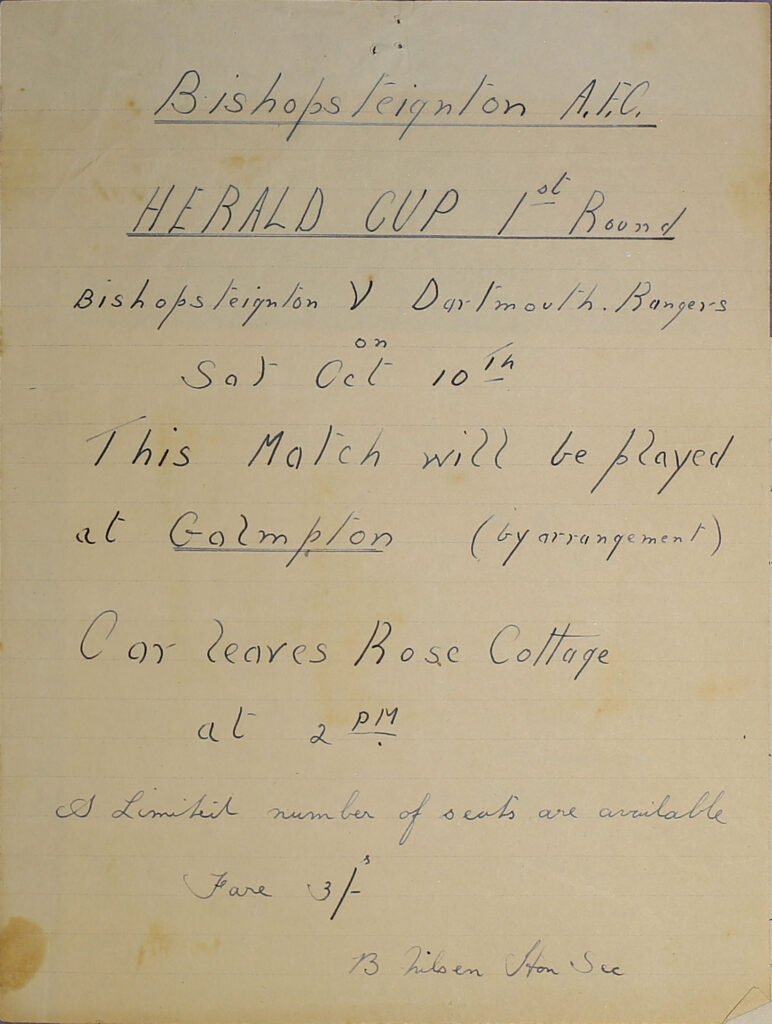 Bishopsteignton A.F.C.
HERALD CUP 1st Round
Bishopsteignton V Dartmouth. Rangers
on
Sat Oct 10Th
This Match will be played
at Galmpton (by arrangement)
Car leaves Rose Cottage
at 2 PM
A Limited number of seats are available
Fare 3/-s
B Nilsen Hon Sec